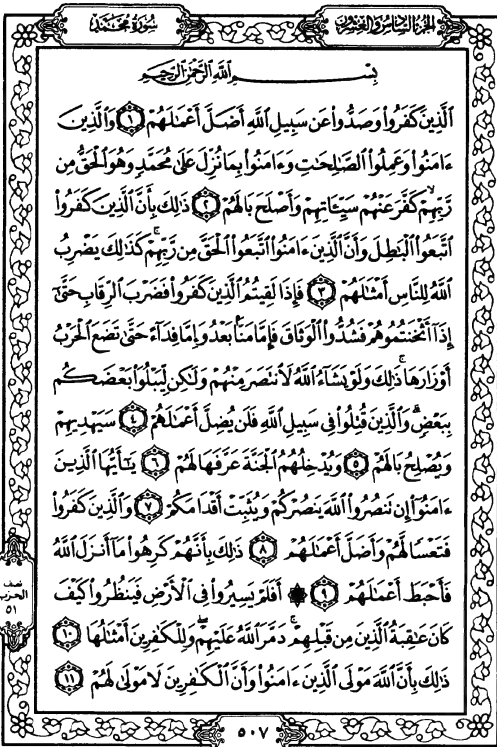 سُورَةُ مُحَمَّد
الجُزْءُ السَّادِسُ وَالعِشْرُونَ
بِسْمِ ٱللَّهِ ٱلرَّحْمَٰنِ ٱلرَّحِيمِ
ٱلَّذِينَ كَفَرُوا۟ وَصَدُّوا۟ عَن سَبِيلِ ٱللَّهِ أَضَلَّ أَعْمَٰلَهُمْ ١ وَٱلَّذِينَ
ءَامَنُوا۟ وَعَمِلُوا۟ ٱلصَّٰلِحَٰتِ وَءَامَنُوا۟ بِمَا نُزِّلَ عَلَىٰ مُحَمَّدٍ وَهُوَ ٱلْحَقُّ مِن
رَّبِّهِمْ ۙ كَفَّرَ عَنْهُمْ سَيِّـَٔاتِهِمْ وَأَصْلَحَ بَالَهُمْ ٢ ذَٰلِكَ بِأَنَّ ٱلَّذِينَ كَفَرُوا۟
ٱتَّبَعُوا۟ ٱلْبَٰطِلَ وَأَنَّ ٱلَّذِينَ ءَامَنُوا۟ ٱتَّبَعُوا۟ ٱلْحَقَّ مِن رَّبِّهِمْ ۚ كَذَٰلِكَ يَضْرِبُ
ٱللَّهُ لِلنَّاسِ أَمْثَٰلَهُمْ ٣ فَإِذَا لَقِيتُمُ ٱلَّذِينَ كَفَرُوا۟ فَضَرْبَ ٱلرِّقَابِ حَتَّىٰٓ
إِذَآ أَثْخَنتُمُوهُمْ فَشُدُّوا۟ ٱلْوَثَاقَ فَإِمَّا مَنًّۢا بَعْدُ وَإِمَّا فِدَآءً حَتَّىٰ تَضَعَ ٱلْحَرْبُ
أَوْزَارَهَا ۚ ذَٰلِكَ وَلَوْ يَشَآءُ ٱللَّهُ لَٱنتَصَرَ مِنْهُمْ وَلَٰكِن لِّيَبْلُوَا۟ بَعْضَكُم
بِبَعْضٍ ۗ وَٱلَّذِينَ قُتِلُوا۟ فِى سَبِيلِ ٱللَّهِ فَلَن يُضِلَّ أَعْمَٰلَهُمْ ٤ سَيَهْدِيهِمْ
وَيُصْلِحُ بَالَهُمْ ٥ وَيُدْخِلُهُمُ ٱلْجَنَّةَ عَرَّفَهَا لَهُمْ ٦ يَٰٓأَيُّهَا ٱلَّذِينَ
ءَامَنُوٓا۟ إِن تَنصُرُوا۟ ٱللَّهَ يَنصُرْكُمْ وَيُثَبِّتْ أَقْدَامَكُمْ ٧ وَٱلَّذِينَ كَفَرُوا۟
فَتَعْسًا لَّهُمْ وَأَضَلَّ أَعْمَٰلَهُمْ ٨ ذَٰلِكَ بِأَنَّهُمْ كَرِهُوا۟ مَآ أَنزَلَ ٱللَّهُ
فَأَحْبَطَ أَعْمَٰلَهُمْ ٩ ۞ أَفَلَمْ يَسِيرُوا۟ فِى ٱلْأَرْضِ فَيَنظُرُوا۟ كَيْفَ
كَانَ عَٰقِبَةُ ٱلَّذِينَ مِن قَبْلِهِمْ ۚ دَمَّرَ ٱللَّهُ عَلَيْهِمْ ۖ وَلِلْكَٰفِرِينَ أَمْثَٰلُهَا ١٠
ذَٰلِكَ بِأَنَّ ٱللَّهَ مَوْلَى ٱلَّذِينَ ءَامَنُوا۟ وَأَنَّ ٱلْكَٰفِرِينَ لَا مَوْلَىٰ لَهُمْ ١١
نصف
الحزب
٥١
٥٠٧